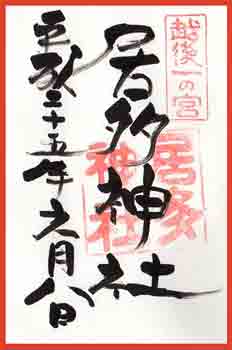 越後一の宮
居多神社
居多神社
平成二十五年六月八日